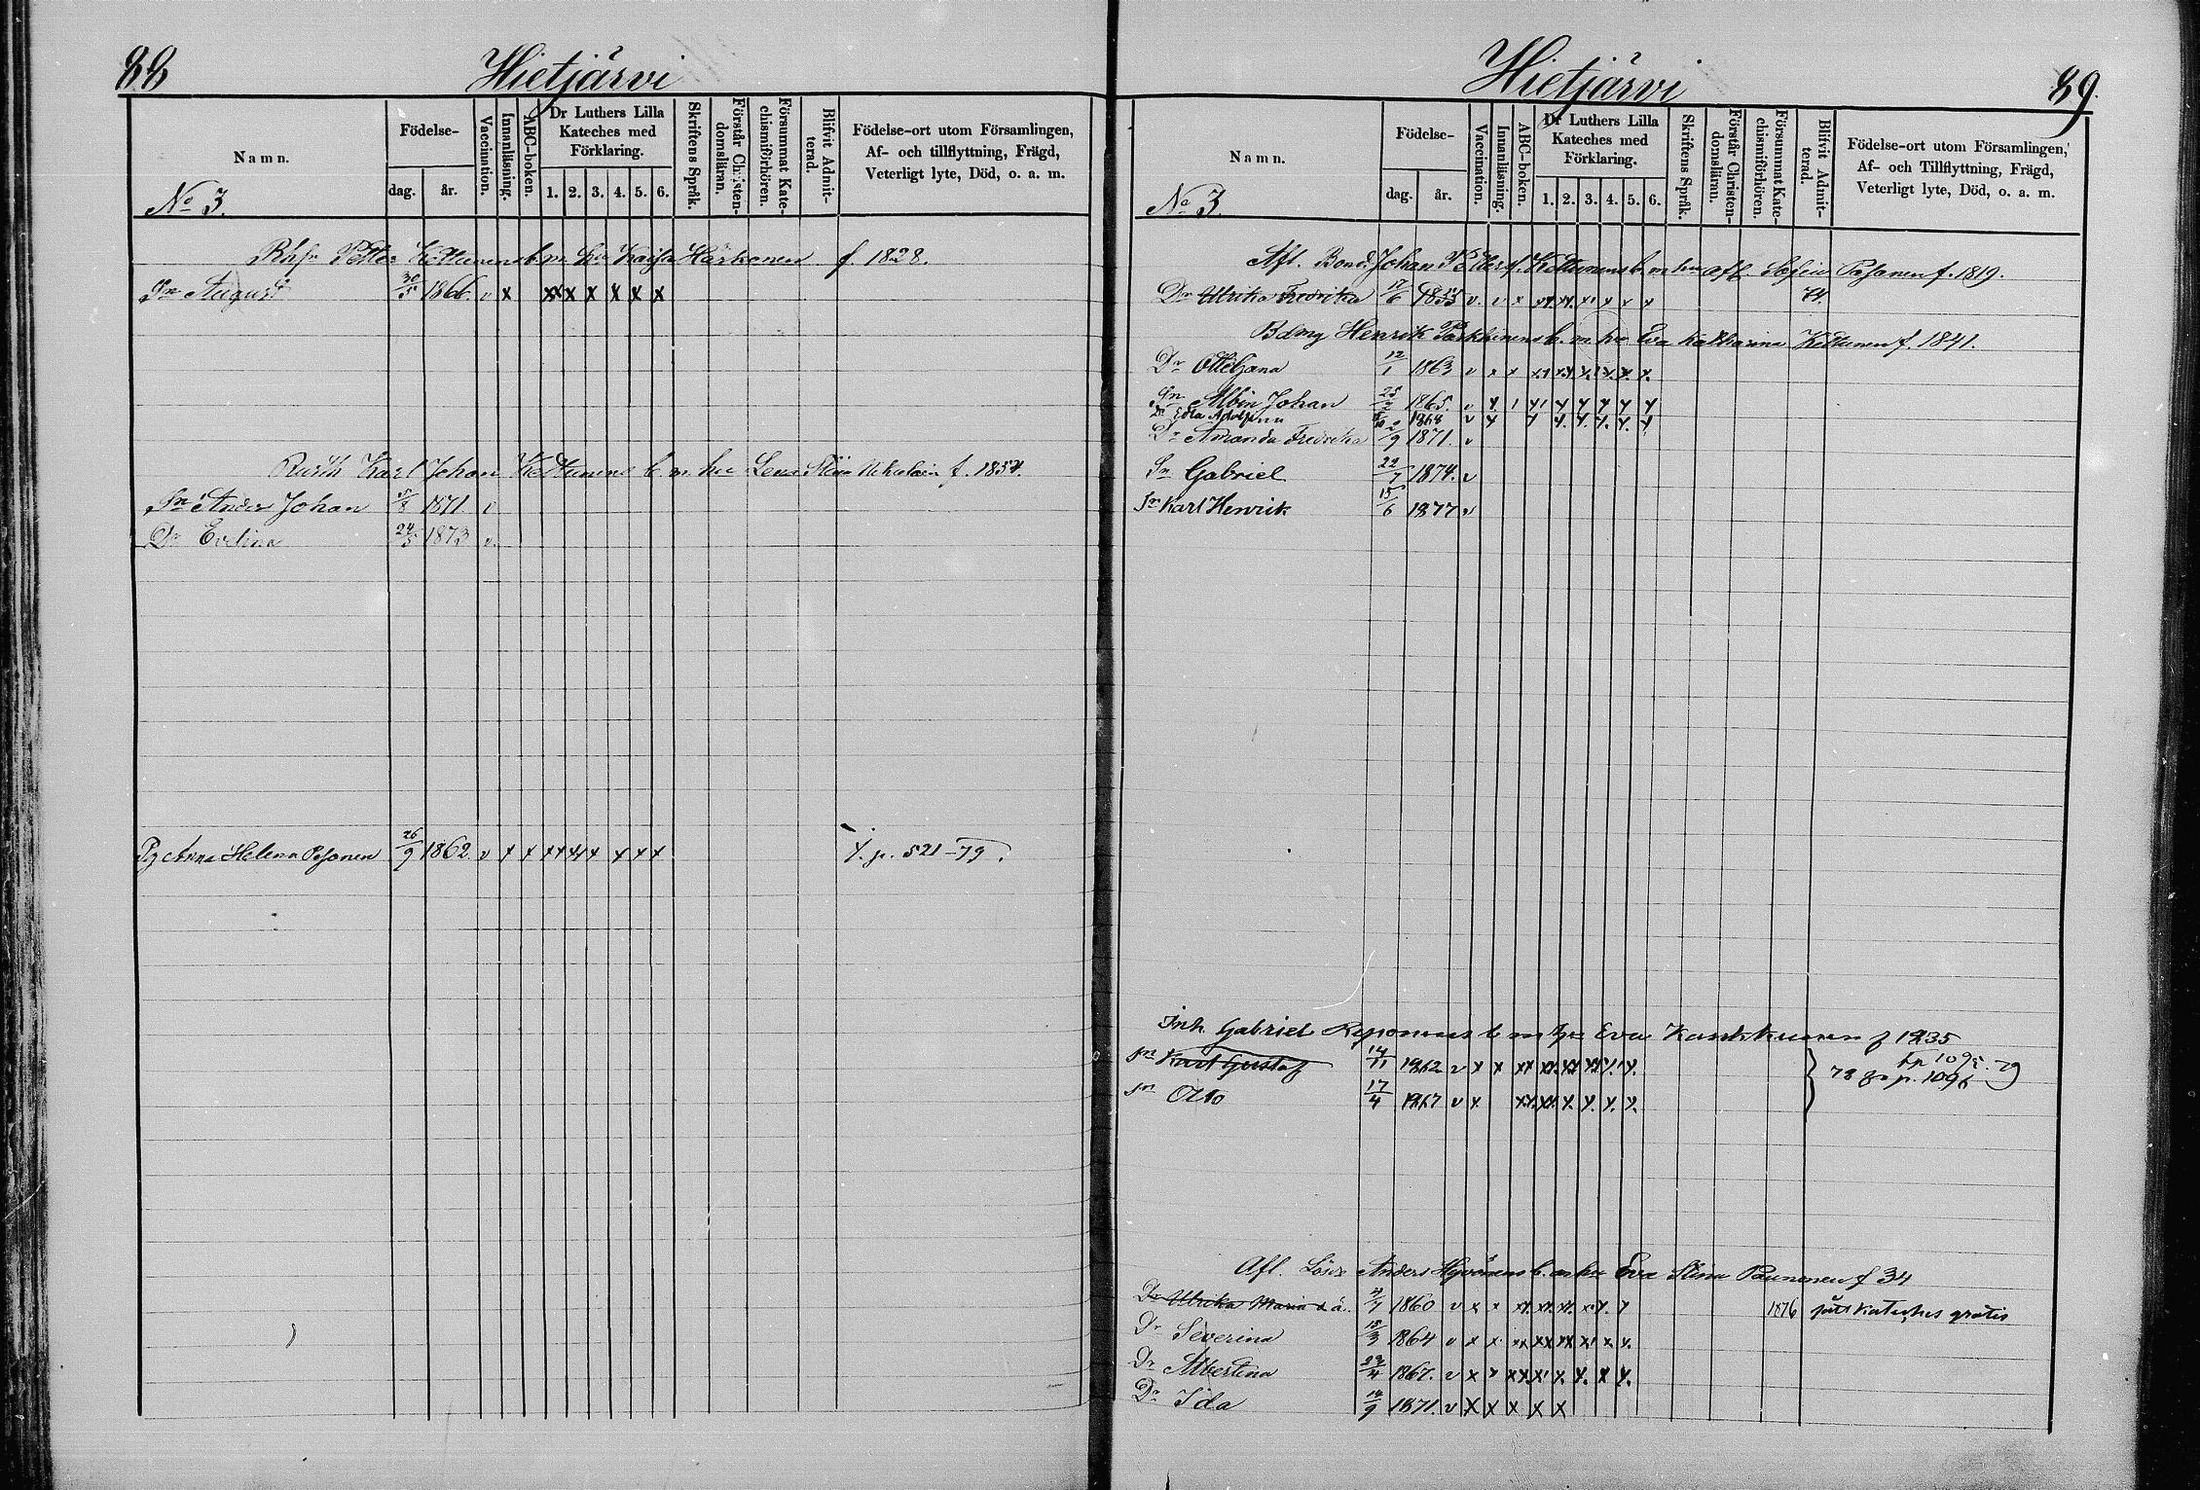 88 Hietjärvi
Namn. Födelse- dag. år. Vaccination. Innanläsning. ABC-boken. Dr Luthers Lilla Kateches med Förklaring. 1. 2. 3. 4. 5. 6. Skriftens Språk. Förstår Christendomsläran. Försummat Katechismiförhören. Blifvit Admitterad. Födelse-ort utom Församlingen, Af- och tillflyttning, Frägd, Veterligt lyte, Död, o. a. m.
No 3.
Petter Kettunens b. m. hu Kaisa Härkönen f. 1828.
Sn August 30/5 1866. v x xx x x x x x
Karl Johan Kettunens b. m. hu Lena Stina Nikulain f. 1854.
Sn Anders Johan 1871. v
Dr Evelina 24/5 1873 v.
Pg Anna Helena Pesonen 26/9 1862. v x x xx xx x x x x p. 521-79.
Hietjärvi 89.
Namn. Födelse- dag. år. Vaccination. Innanläsning. ABC-boken. Dr Luthers Lilla Kateches med Förklaring. 1. 2. 3. 4. 5. 6. Skriftens Språk. Förstår Christendomsläran. Försummat Katechismiförhören. Blifvit Admitterad. Födelse-ort utom Församlingen, Af- och Tillflyttning, Frägd, Veterligt lyte, Död, o. a. m.
No 3.
Afl. Bond. Johan Petter Kettunens b. m. hu afl. Sofia Pesonen f. 1819.
Dr Ulrika Fredrika 17/6 v. v x xx xx. x x x x 74.
Henrik b. m. hu Eva Katharina Kettunen f. 1841.
Dr Ottiljana 12/1 1863 v x x xx xx x x x x.
Sn Albin Johan 25/2 1865. v x x x x x x x
Dr Edla Adolfina 1868 v x x x x x x x
Dr Amanda Fredrika 2/9 1871. v
Sn Gabriel 22/7 1874. v
Sn Karl Henrik 15/6 1877 v
Inh. Gabriel Reponens b m hu Eva Kankkunen f 1835
Sn Karl Gustaf 14/11 1862 v x x xx xx xx xx x x. 1095. 79
Sn Otto 17/4 1867 v x xx xx x x x x. 78 p. 1096
Afl. Anders Hyvönens b. m hu Eva Stina Paunonen f 34
Dr Ulrika Maria d. ä. 4/7 1860 v x x xx xx. xx. x x x 1876 fått kateches gratis
Dr Severina 18/3 1864 v x x xx xx xx x x x.
Dr Albertina 22/4 1867. v x x xx x x x x x.
Dr Ida 14/9 1871. v x x x x x